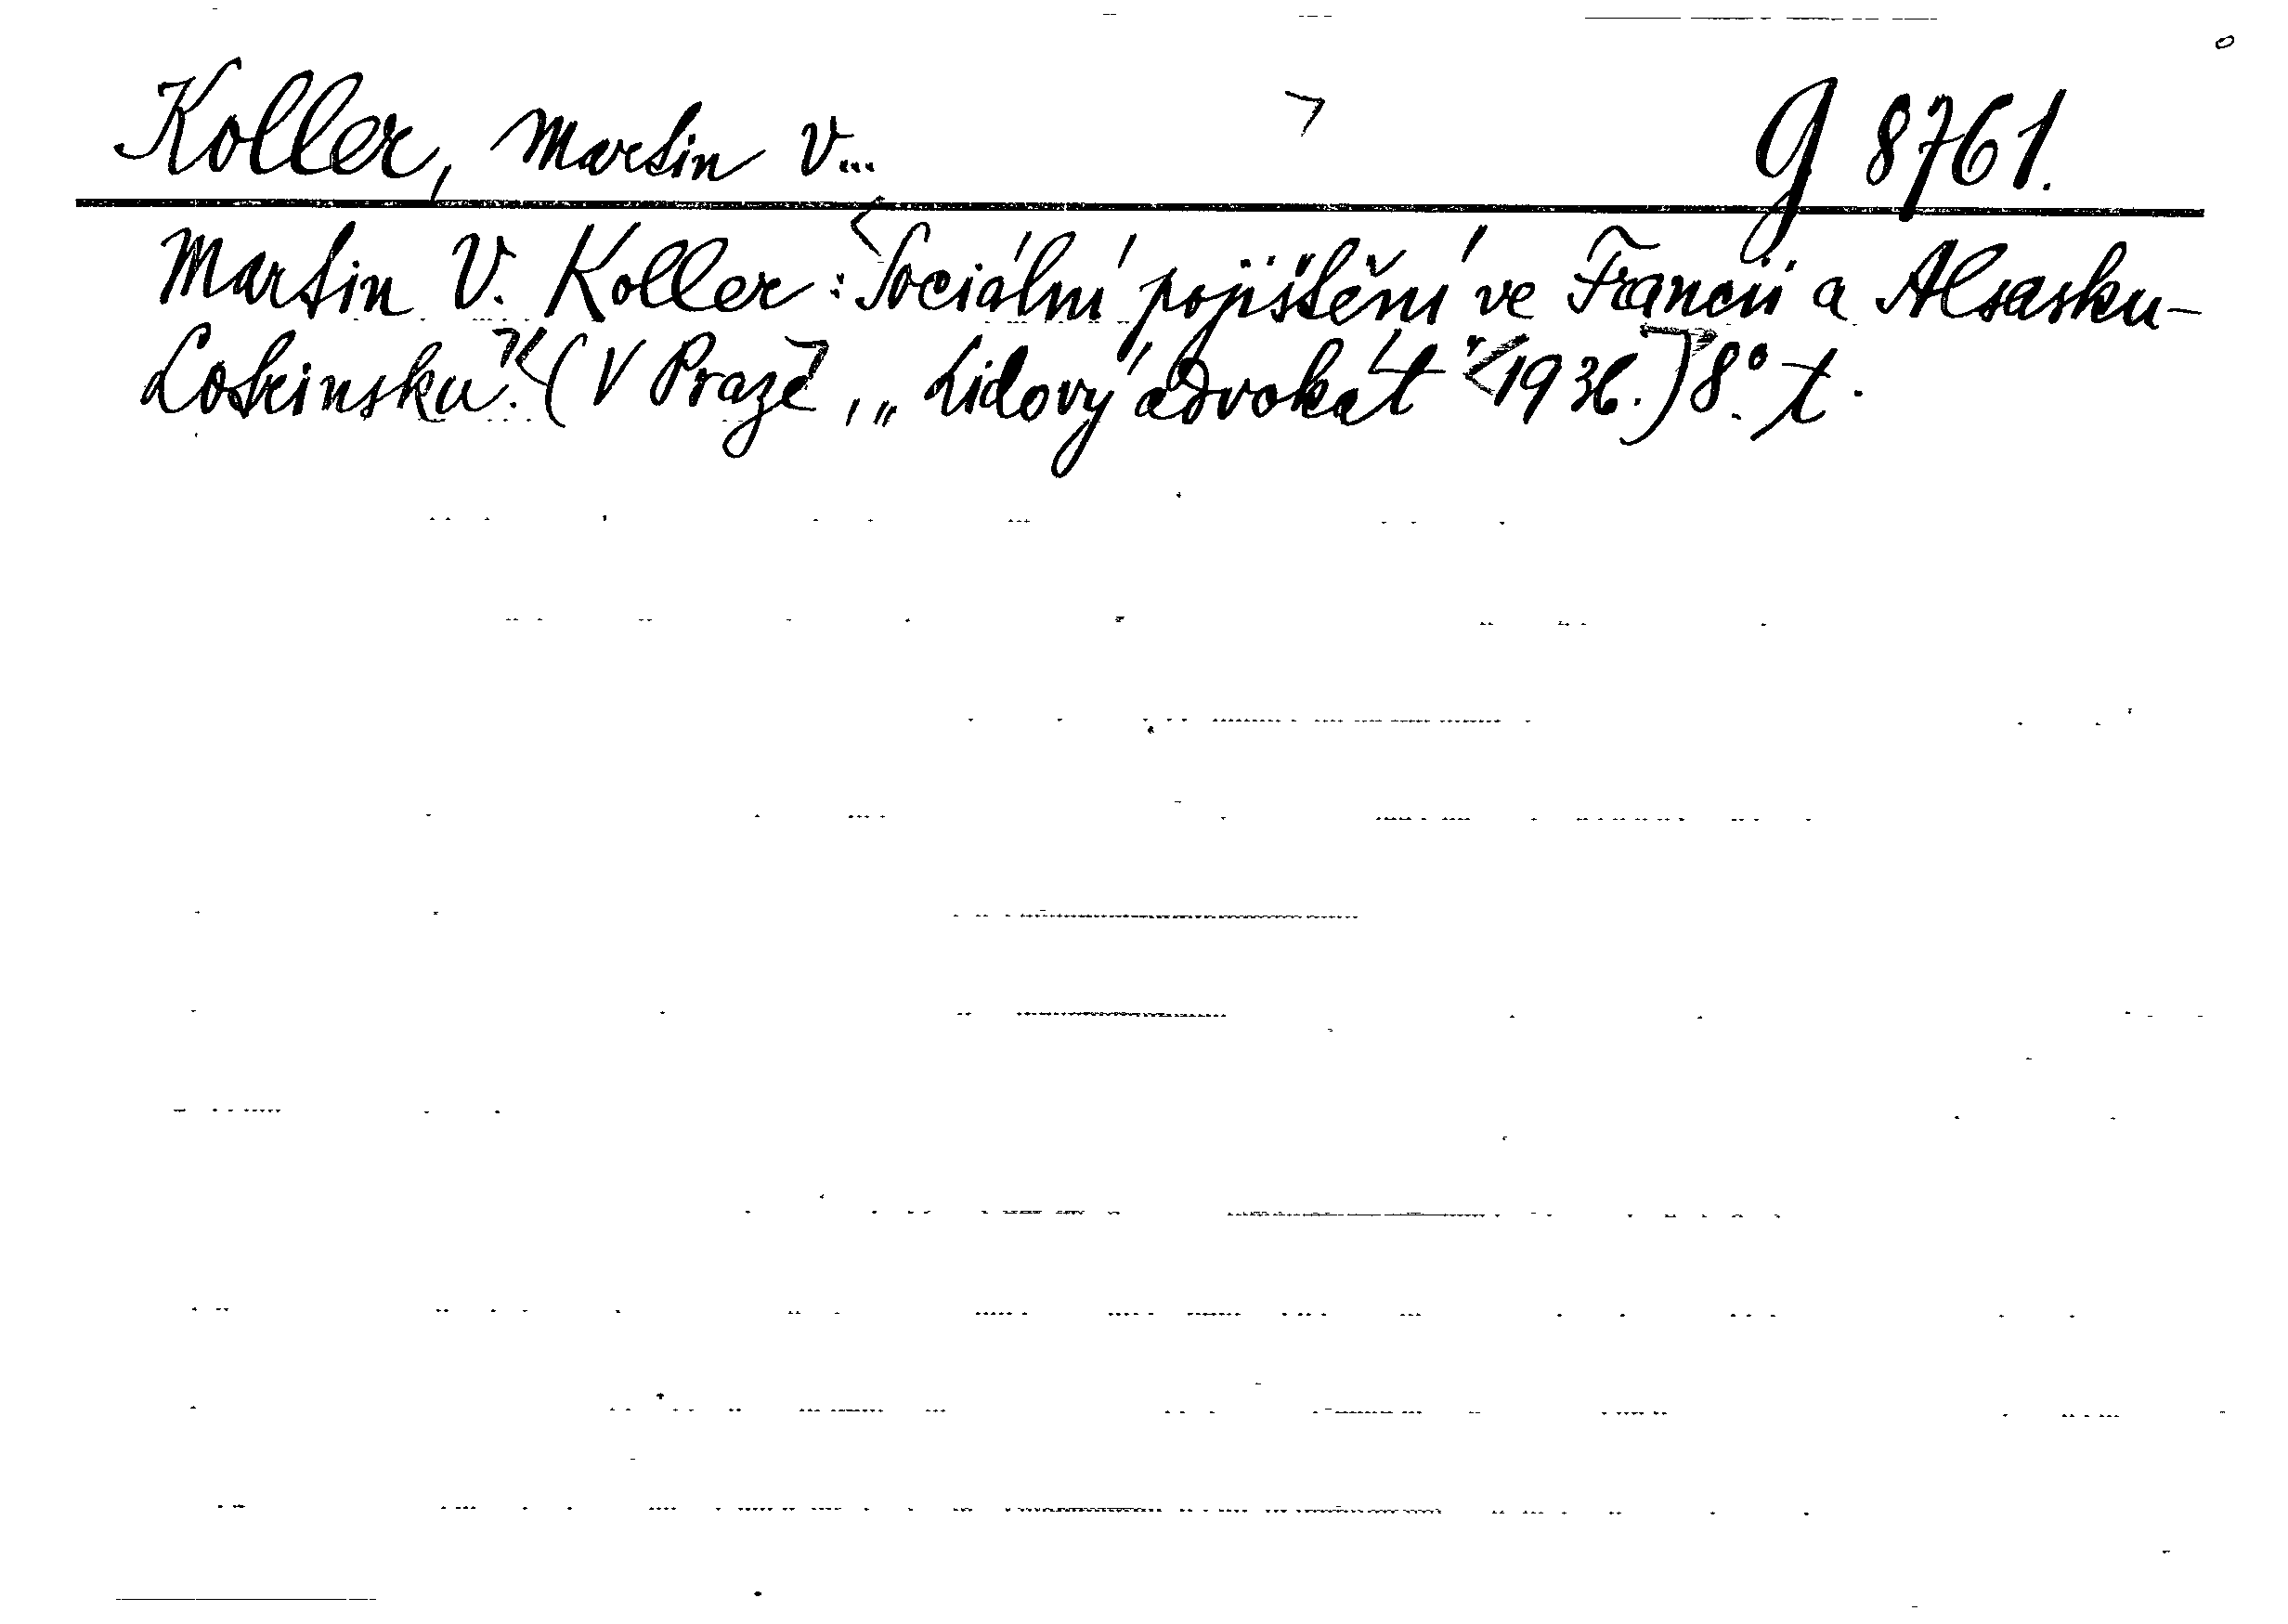 Koller, Martin V... G 8761.
Martin V. Koller: Sociální pojištění ve Francii a Alsasku-
Lotrinsku. (V Praze, „Lidový advokát“ 1936.) 8°. t.